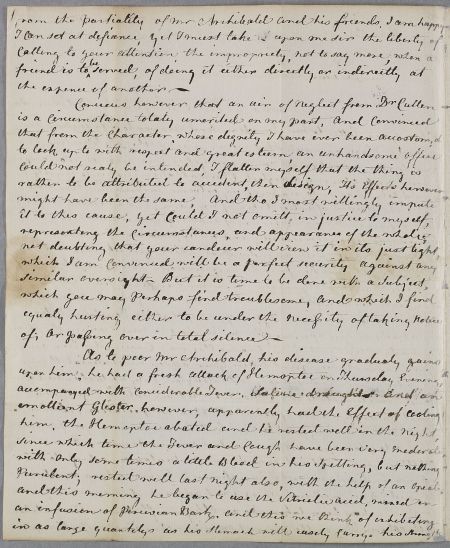 from the partiality of Mr Archibald and his friends, I am happy
I can set at defiance, yet I must take upon me Sir the liberty of
Calling to your attention the impropriety, not to say more, when a
friend is to be served, of doing it either directly or indirectly at
the expence of another —
Concious however that an air of Neglect from Dr Cullen
is a circumstance totaly unmerited on my part, And Convinced
that from the Character whose dignity I have ever been accostom'd
to look up to with respect and great esteem, an unhandsome office
Could not realy be intended, I flatter myself that the thing is
rather to be attributed to accident, than design, Its Effects however
might have been the same, And tho I most willingly impute
it to this cause, yet Could I not omitt, in justice to myself,
representing the Circumstances, and appearance of the whole,
not doubting that your candour will view it in its just light,
which I am Convinced will be a perfect security against any
Similar oversight — But it is time to be done with a Subject,
which you may Perhaps find troublesome, And which I find
equaly hurting either to be under the Necessity of taking Notice
of, Or passing over in total silence —
As to poor Mr Archibald, his disease gradualy gains
upon him, he had a fresh attack of Hemoptoe on Thursday Evening
accompanyed with Considerable Fever, Saline draughts And an
emollient Glester, however, apparently had the Effect of Cooling
him, the Hemoptoe abated and he rested well in the Night,
since which time the Fever and Cough have been very moderate
with only some times a little Blood in his Spitting, but nothing
Purulent, rested well last night also, with the help of an Opiate
and this morning he began to use the Vitriolic Acid, mixed in
an infusion of Peruvian Bark, and this we think of exhibiting
in as large quantitys as his stomach will easily carry, his